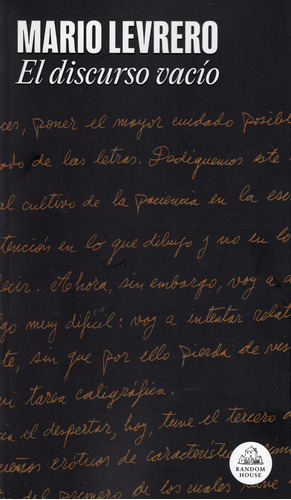 MARIO LEVRERO
El discurso vacío
ces, poner el mayor cuidado posibl
ado de las letras. Dediquemos este
al cultivo de la paciencia en la esc
tención en lo que dibujo y no en lo
decir. Ahora, sin embargo, voy a a
lgo muy difícil: voy a intentar relat
te, sin que por ello pierda de vis
mi tarea caligráfica.
al despertar, hoy, tuve el tercero d
sueños eróticos de característic
del primero de los cuales tuve
RANDOM
HOUSE